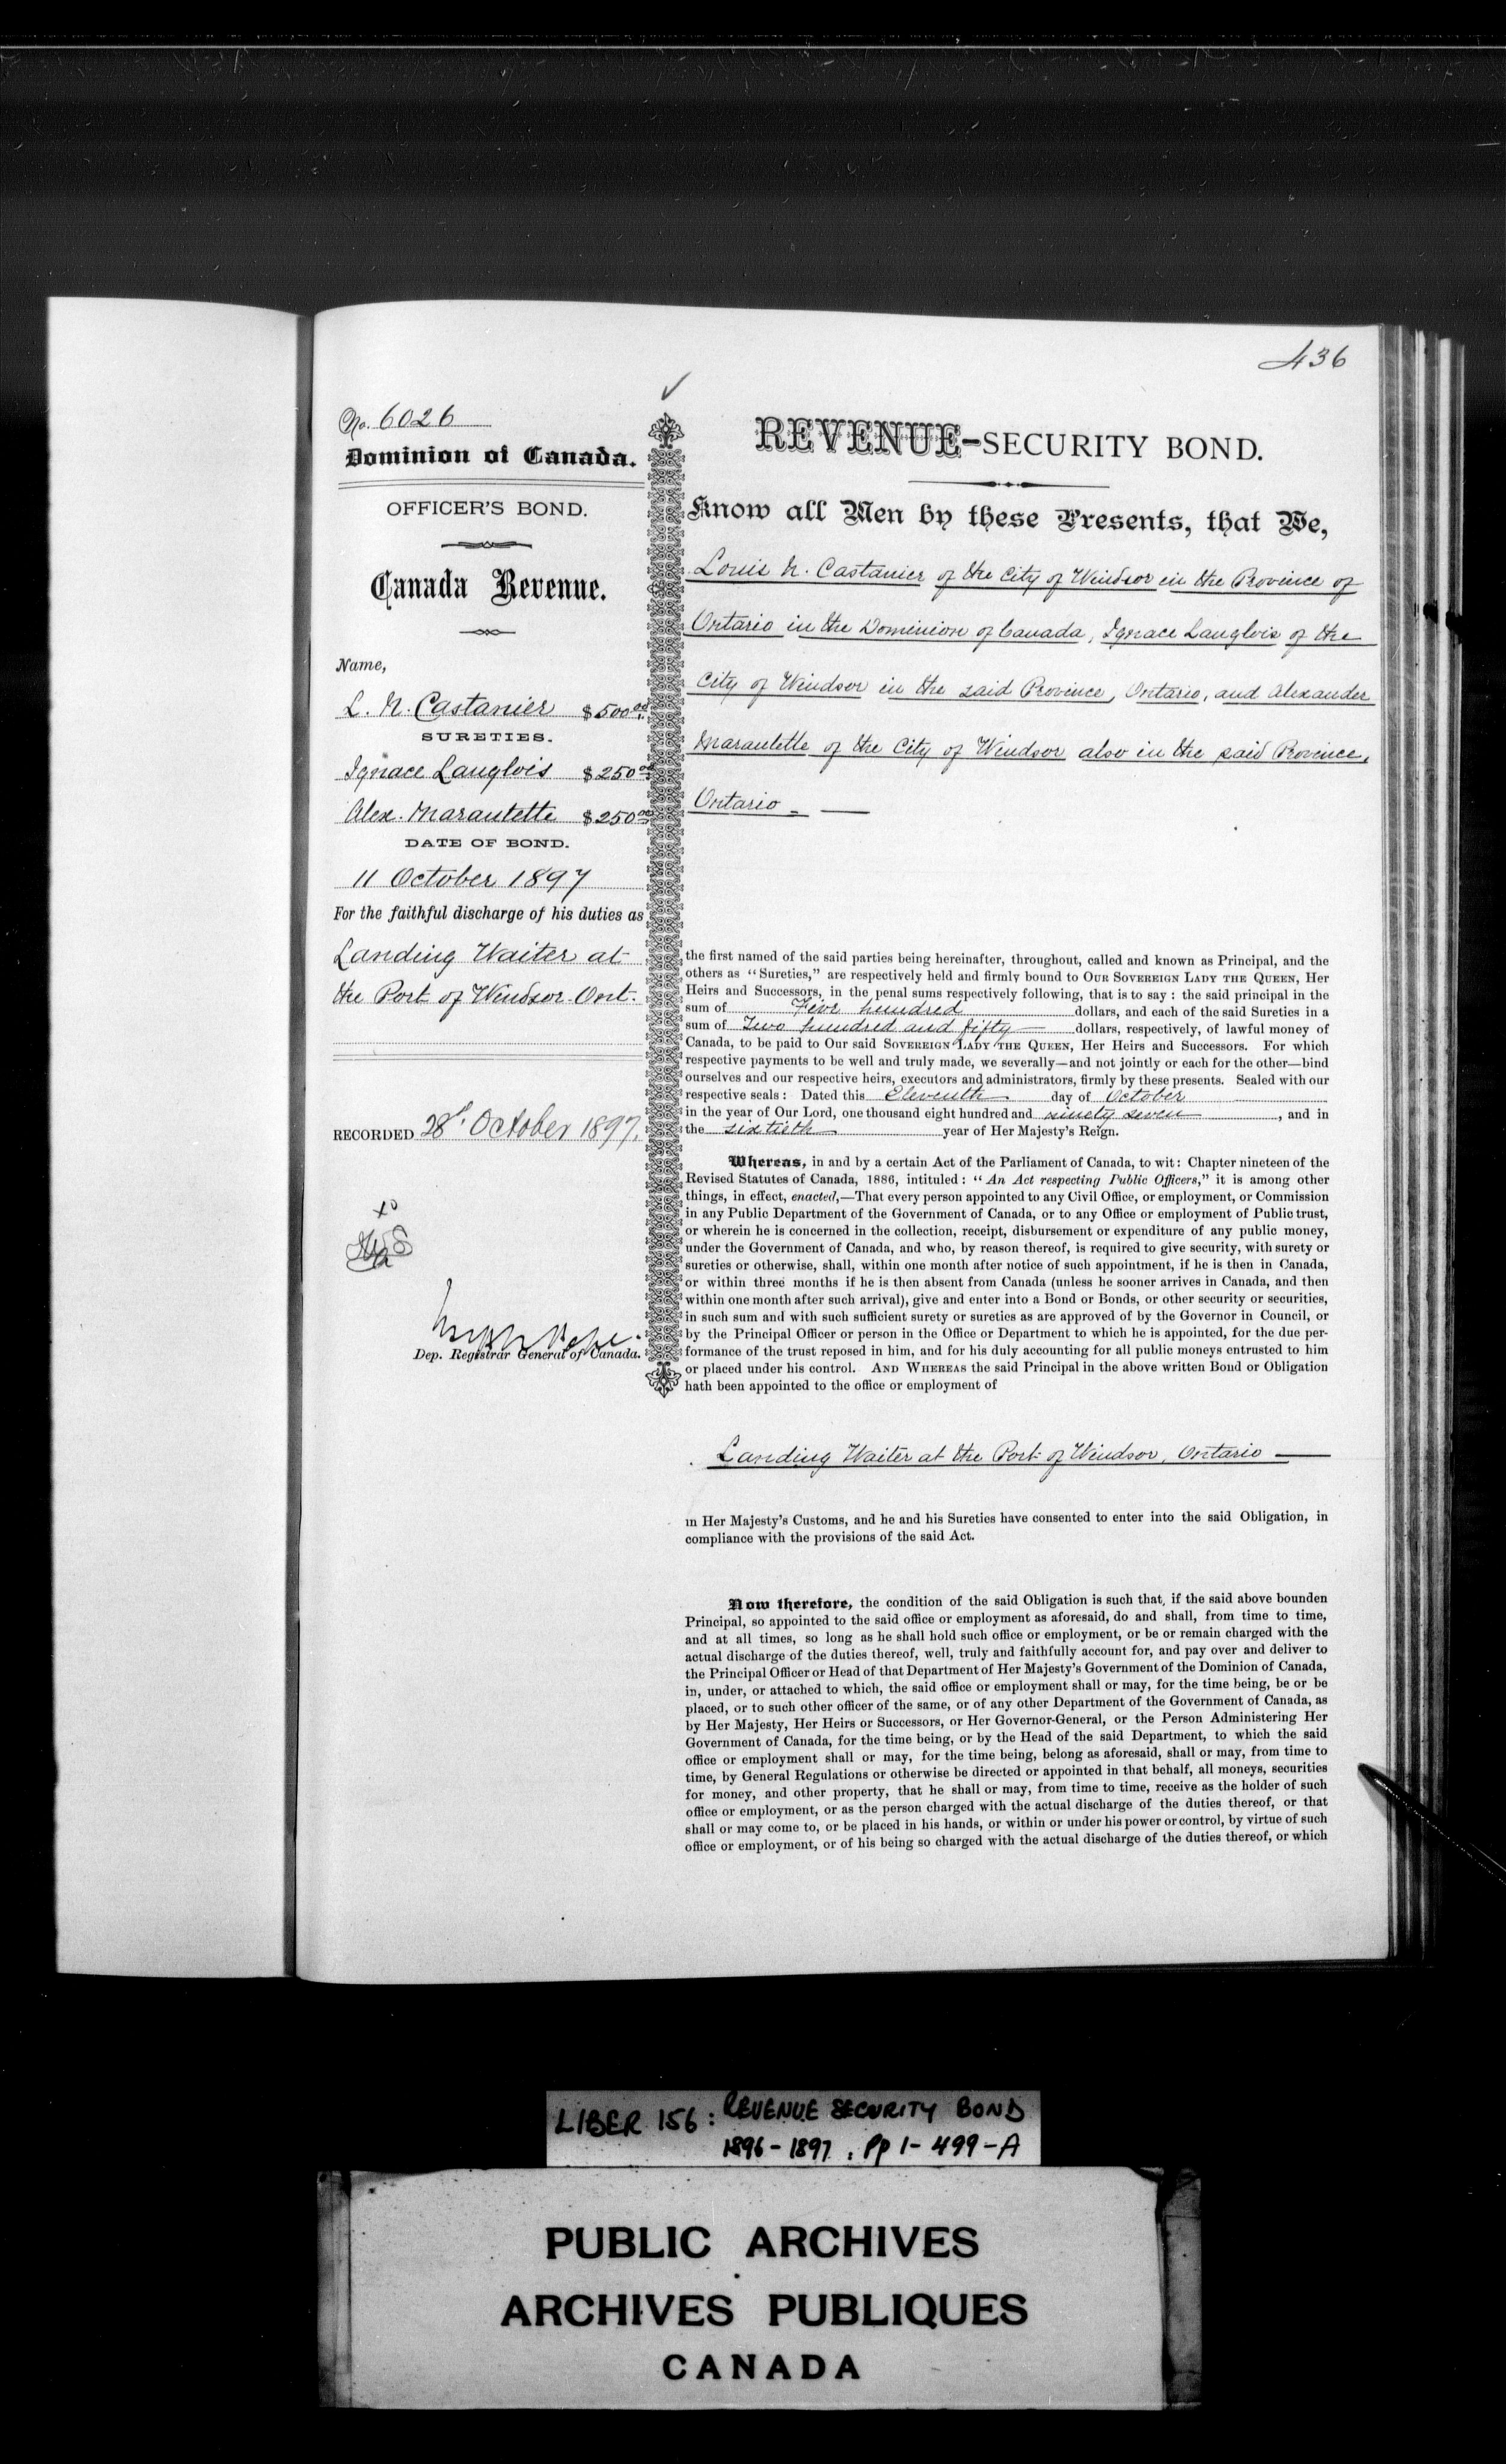 436
No. 6026
Dominion of Canada.
OFFICER'S BOND.
Canada Revenue.
Name,
L. N. Castanier $500.00
SURETIES.
Ignace Langlois $250.00
Alex. Marautette $250.00
DATE OF BOND.
11 October 1897
For the faithful discharge of his duties as
Landing Waiter at
the Port of Windsor Ont.
RECORDED 28th October 1897.
Dep. Registrar General of Canada.
REVENUE-SECURITY BOND.
Know all Men by these Presents, that We,
Louis N. Castanier of the City of Windsor in the Province of
Ontario in the Dominion of Canada, Ignace Langlois of the
City of Windsor in the said Province, Ontario, and Alexander
Marautette of the City of Windsor also in the said Province,
Ontario
the first named of the said parties being hereinafter, throughout, called and known as Principal, and the
others as "Sureties," are respectively held and firmly bound to OUR SOVEREIGN LADY THE QUEEN, Her
Heirs and Successors, in the penal sums respectively following, that is to say : the said principal in the
sum of Five hundred dollars, and each of the said Sureties in a
sum of Two hundred and fifty dollars, respectively, of lawful money of
Canada, to be paid to Our said SOVEREIGN LADY THE QUEEN, Her Heirs and Successors. For which
respective payments to be well and truly made, we severally—and not jointly or each for the other—bind
ourselves and our respective heirs, executors and administrators, firmly by these presents. Sealed with our
respective seals : Dated this Eleventh day of October
in the year of Our Lord, one thousand eight hundred and ninety seven, and in
the sixtieth year of Her Majesty's Reign.
Whereas, in and by a certain Act of the Parliament of Canada, to wit: Chapter nineteen of the
Revised Statutes of Canada, 1886, intituled : "An Act respecting Public Officers," it is among other
things, in effect, enacted,—That every person appointed to any Civil Office, or employment, or Commission
in any Public Department of the Government of Canada, or to any Office or employment of Public trust,
or wherein he is concerned in the collection, receipt, disbursement or expenditure of any public money,
under the Government of Canada, and who, by reason thereof, is required to give security, with surety or
sureties or otherwise, shall, within one month after notice of such appointment, if he is then in Canada,
or within three months if he is then absent from Canada (unless he sooner arrives in Canada, and then
within one month after such arrival), give and enter into a Bond or Bonds, or other security or securities,
in such sum and with such sufficient surety or sureties as are approved of by the Governor in Council, or
by the Principal Officer or person in the Office or Department to which he is appointed, for the due per-
formance of the trust reposed in him, and for his duly accounting for all public moneys entrusted to him
or placed under his control. AND WHEREAS the said Principal in the above written Bond or Obligation
hath been appointed to the office or employment of
Landing Waiter at the Port of Windsor, Ontario
in Her Majesty's Customs, and he and his Sureties have consented to enter into the said Obligation, in
compliance with the provisions of the said Act.
Now therefore, the condition of the said Obligation is such that, if the said above bounden
Principal, so appointed to the said office or employment as aforesaid, do and shall, from time to time,
and at all times, so long as he shall hold such office or employment, or be or remain charged with the
actual discharge of the duties thereof, well, truly and faithfully account for, and pay over and deliver to
the Principal Officer or Head of that Department of Her Majesty's Government of the Dominion of Canada,
in, under, or attached to which, the said office or employment shall or may, for the time being, be or be
placed, or to such other officer of the same, or of any other Department of the Government of Canada, as
by Her Majesty, Her Heirs or Successors, or Her Governor-General, or the Person Administering Her
Government of Canada, for the time being, or by the Head of the said Department, to which the said
office or employment shall or may, for the time being, belong as aforesaid, shall or may, from time to
time, by General Regulations or otherwise be directed or appointed in that behalf, all moneys, securities
for money, and other property, that he shall or may, from time to time, receive as the holder of such
office or employment, or as the person charged with the actual discharge of the duties thereof, or that
shall or may come to, or be placed in his hands, or within or under his power or control, by virtue of such
office or employment, or of his being so charged with the actual discharge of the duties thereof, or which
LIBER 156: REVENUE SECURITY BOND
1896-1897. Pp 1-499-A
PUBLIC ARCHIVES
ARCHIVES PUBLIQUES
CANADA